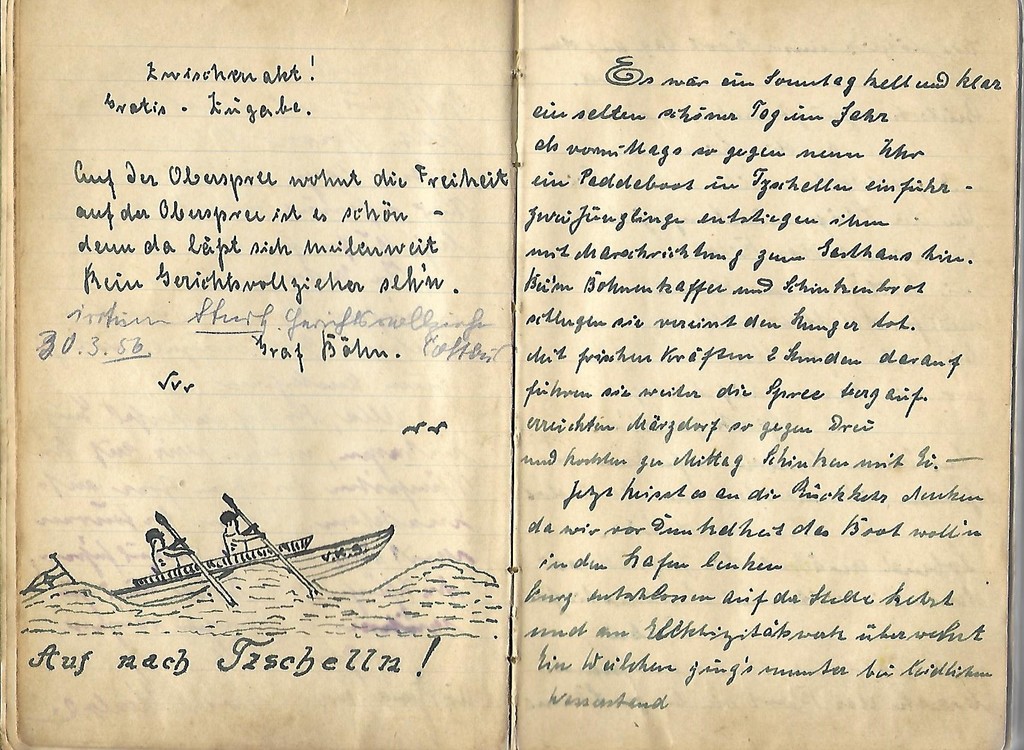 Zwischenakt!
Gratis - Zugabe.
Auf der Oberspree wohnt die Freiheit
auf der Oberspree ist es schön -
denn da läßt sich meilenweit
kein Gerichtsvollzieher sehn.
irrtum Gerichtsvollzieher
30.3.56 Graf Böhn. Cottbus
V.K.S.
Auf nach Tzschelln!
Es war ein Sonntag hell und klar
ein selten schöner Tag im Jahr
als vormittags so gegen neun Uhr
ein Paddeboot in Tzschelln einfuhr -
zwei Jünglinge entstiegen ihm
mit Marschrichtung zum Gasthaus hin.
Beim Bohnenkaffee und Schinkenbrot
schlugen sie vereint den Hunger tot.
Mit frischen Kräften 2 Stunden darauf
fuhren sie weiter die Spree bergauf.
erreichten Märzdorf so gegen Drei
und kochten zu Mittag Schinken mit Ei. —
Jetzt heisst es an die Rückkehr denken
da wir vor Dunkelheit das Boot wolln
in den Hafen lenken
kurz entschlossen auf der Stelle kehrt
und am Elektrizitätswerk überwehrt
Ein Weilchen ging's munter bei leidlichem
Wasserstand